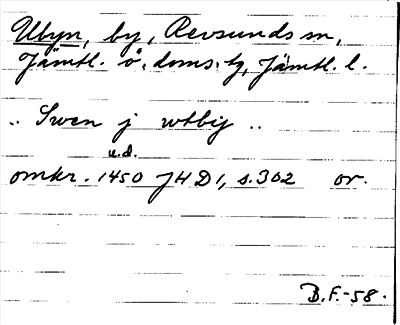 Utbyn, by, Revsunds sn,
Jämtl. ö. doms. tg, Jämtl. l.
.. Swen j wtbij ..
u.d.
omkr. 1450 JHD1, s. 302 or.
B.F.-58.